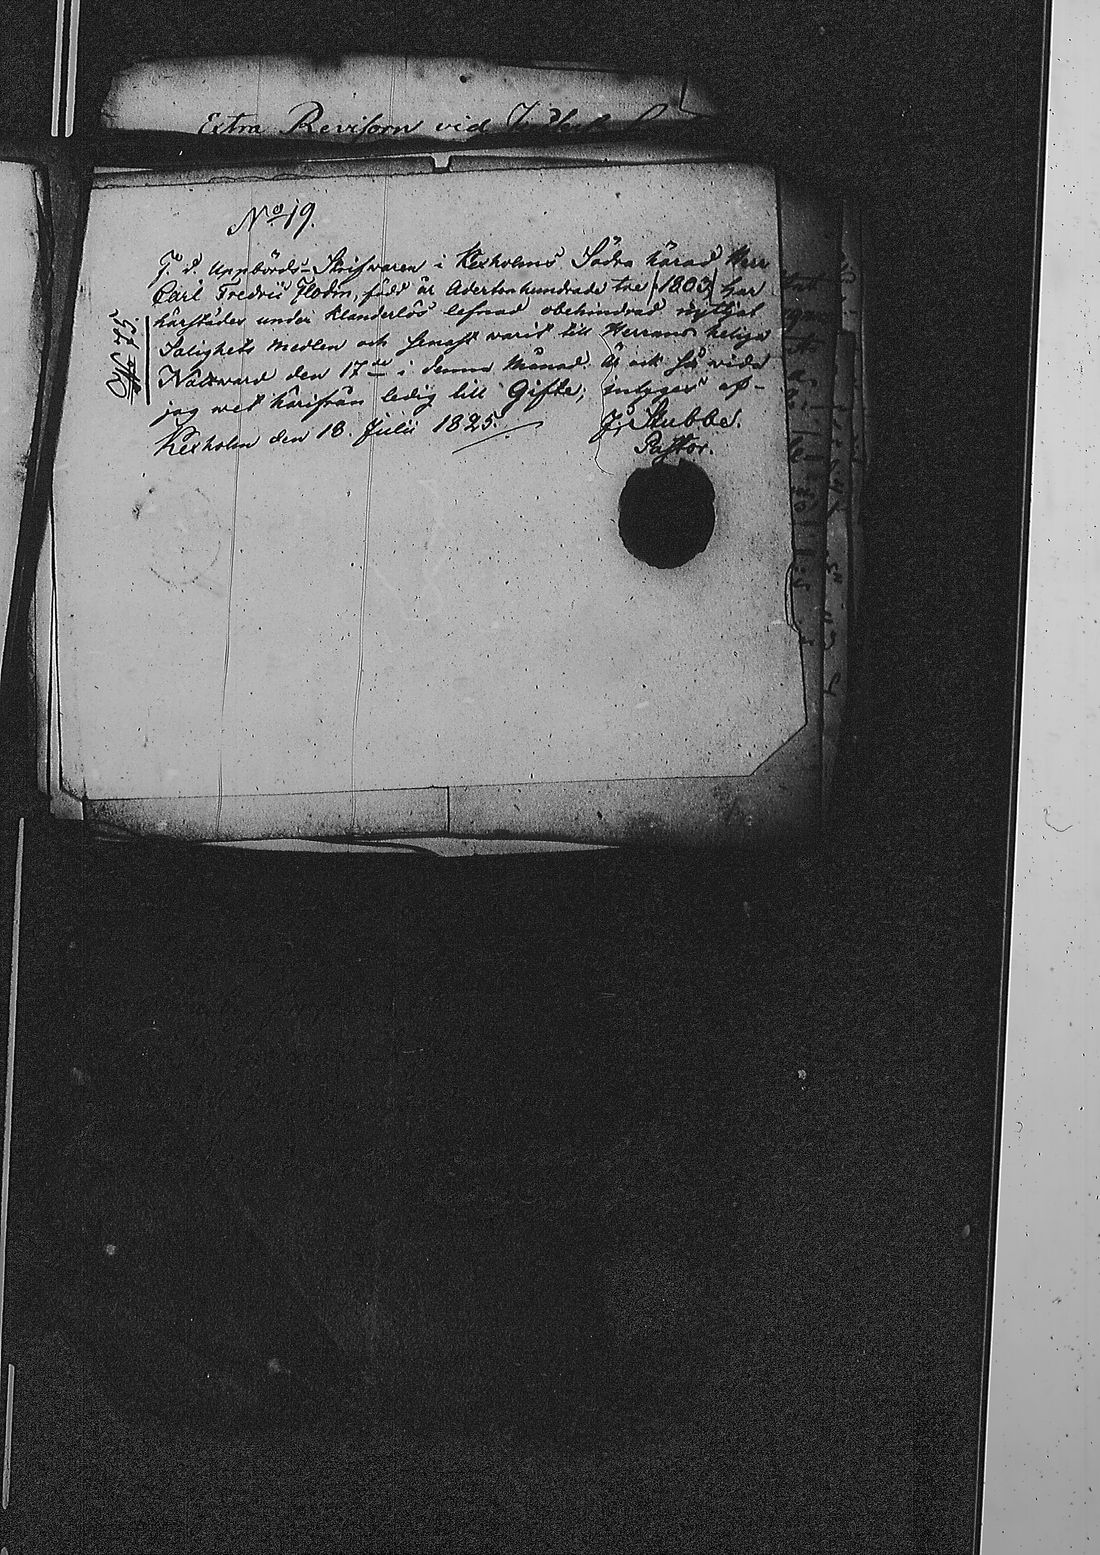 Extra Revisorn vid
No 19.
T. d. Uppbörds-Skrifvaren i Kexholms Södra härad Herr
Carl Fredric Flodin, född år Adertonhundrade tre /:1803:/ har
härstädes under klanderlös lefnad obehindrad nyttjat
Salighets medlen och senast varit till Herrans heliga
Nattward den 17de i denna Månad. Är ock så vida
jag vet härifrån ledig till Gifte; intygas af-
Kexholm den 18. Julii 1825.
J. Stubbe.
Pastor.